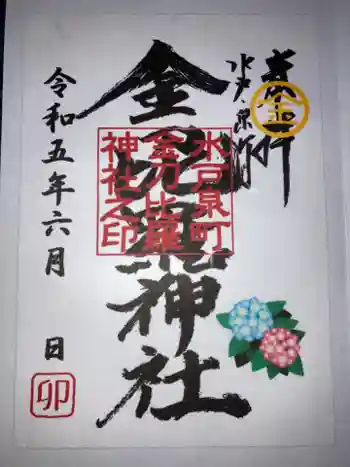 奉拝
水戸・泉町
金刀比羅神社
水戸泉町
金刀比羅
神社之印
令和五年六月　日
卯